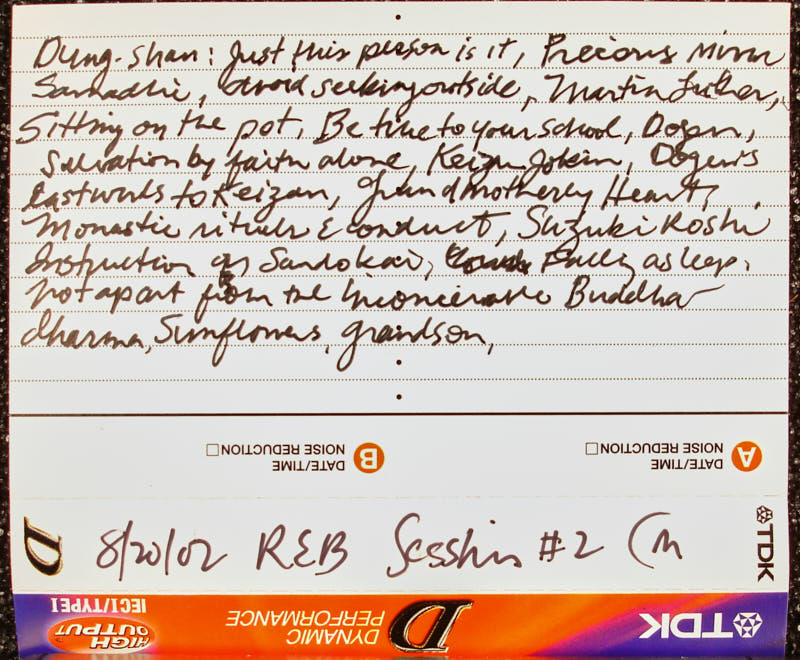 Dung-shan: Just this person is it, Precious Mirror
Samadhi, avoid seeking outside, Martin Luther,
Sitting on the pot, Be true to your school, Dogen,
Salvation by faith alone, Keizan Jokin, Dogen's
Last words to Keizan, Grandmotherly Heart,
Monastic rituals & conduct, Suzuki Roshi
Instruction on Sandokai, Fully asleep,
Not apart from the Inconceivable Buddha
dharma, Sunflowers, grandson,
B DATE/TIME
NOISE REDUCTION
A DATE/TIME
NOISE REDUCTION
D 8/20/02 REB Sesshin #2 TDK
HIGH OUTPUT IECI/TYPE I
DYNAMIC PERFORMANCE D
TDK